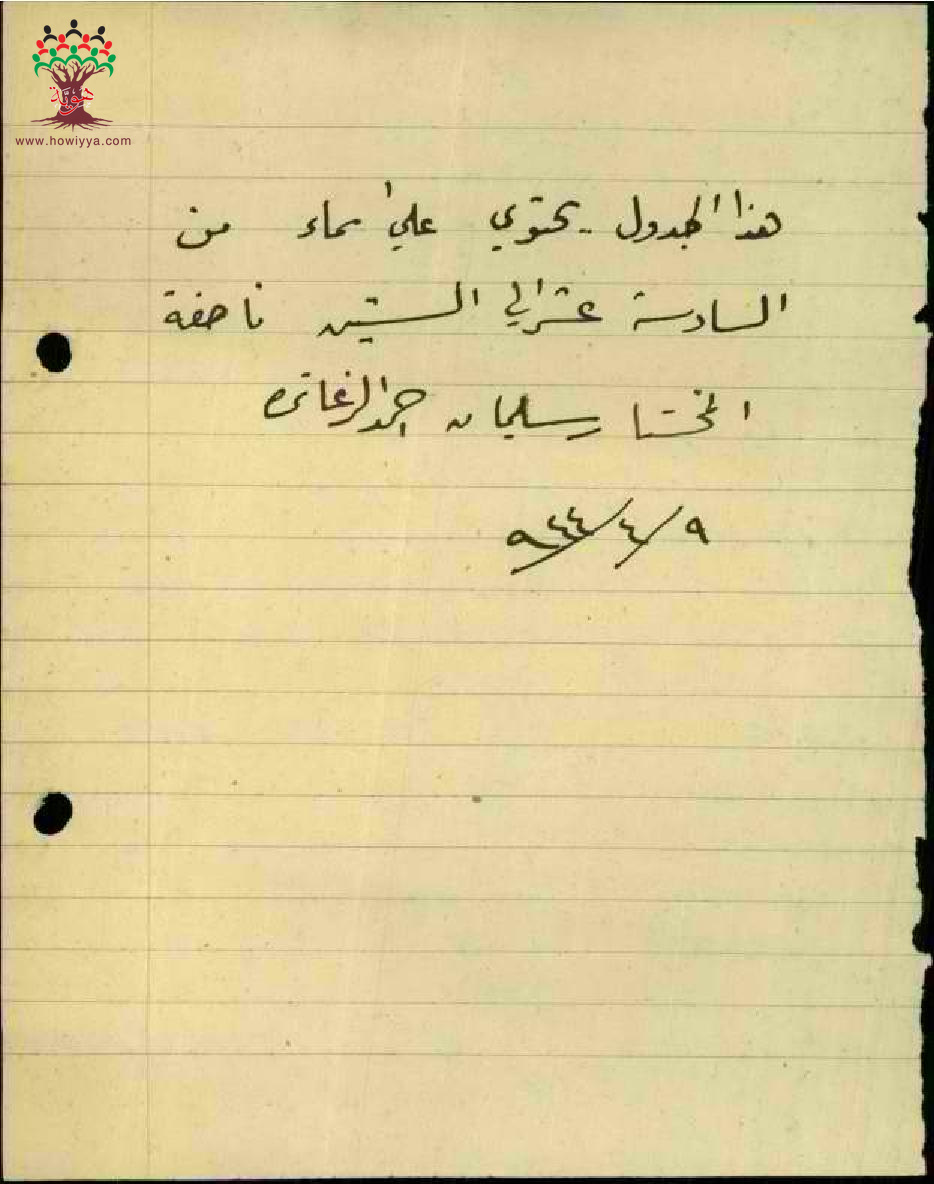 هوية
www.howiyya.com
هذا الجدول يحتوي على اسماء من
السادسة عشر الى الستين ناهفة
المختار سليمان احمد الزعاتره
٩/٤/٩٤٤